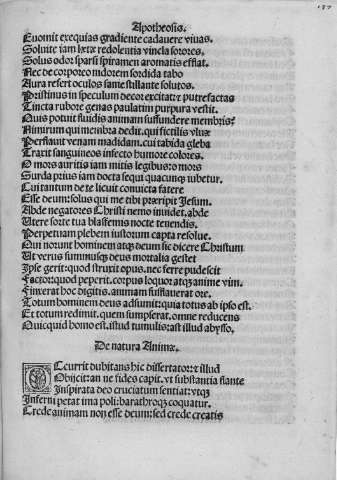 Apotheosis.
Euomit exequias gradiente cadauere viuas.
Soluite iam lętæ redolentia vincla sorores.
Solus odor sparsi spiramen aromatis efflat.
Nec de corporeo nidorem sordida tabo
Aura refert oculos sanie stillante solutos.
Pristinus in speculum decor excitat: & putrefactas
Tincta rubore genas paulatim purpura vestit.
Quis potuit fluidis animam suffundere membris?
Nimirum qui membra dedit. qui fictilis vluæ
Perflauit venam madidam. cui tabida gleba
Traxit sanguineos infecto humore colores.
O mors auritis iam mitis legibus: o mors
Surda prius iam docta sequi quacunq; iubetur.
Cui tantum de te licuit conuicta fatere
Esse deum: solus qui me tibi præripit Jesum.
Abde negatores Christi nemo inuidet. abde
Utere sorte tua blasfemis nocte tenendis.
Perpetuam plebem iustorum capta resolue.
Qui norunt hominem atq; deum sic dicere Christum
Ut verus summusq; deus mortalia gestet
Ipse gerit: quod struxit opus. nec ferre pudescit
Factor: quod peperit. corpus loquor atq; anime vim.
Finxerat hoc digitis. animam sufflauerat ore.
Totum hominem deus adsumit: quia totus ab ipso est.
Et totum redimit. quem sumpserat. omne reducens
Quicquid homo est. istud tumulis: ast illud abysso.
De natura Animæ.
Occurrit dubitans hic dissertator: & illud
Obijcit: an ne fides capit. vt substantia flante
Inspirata deo cruciatum sentiat: vtq;
Inferni petat ima poli: barathroq; coquatur.
Crede animam non esse deum: sed crede creatis